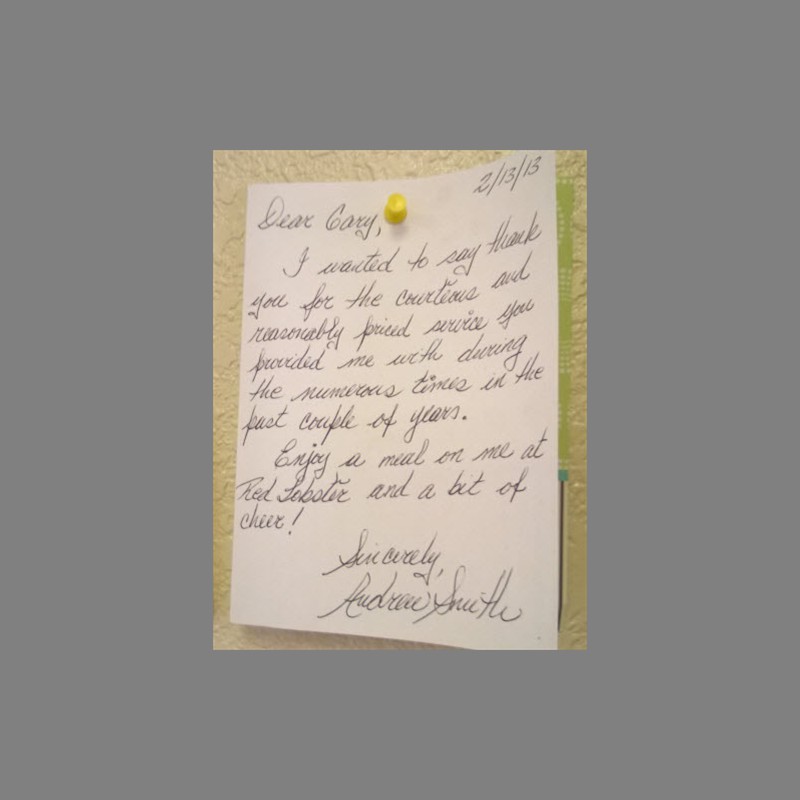 2/13/13
Dear Gary,
I wanted to say thank
you for the courteous and
reasonably priced service you
provided me with during
the numerous times in the
past couple of years.
Enjoy a meal on me at
Red Lobster and a bit of
cheer!
Sincerely,
Andrew Smith